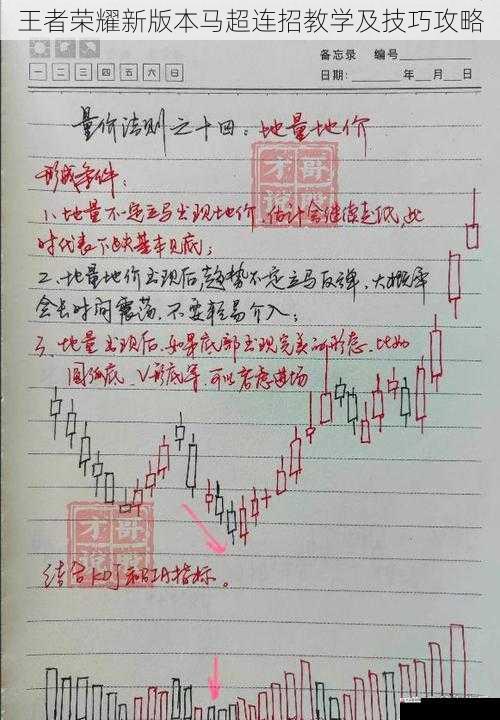 王者荣耀新版本马超连招教学及技巧攻略
备忘录 编号
一 二 三 四 五 六 日
日期: 年 月 日
量价法则之十四：地量地价
形成条件：
1、地量不一定立马出现地价，估计会继续走低，此
时代表下跌基本见底；
2、地量地价出现后，趋势不一定立马反弹，大概率
会长时间震荡，不要轻易介入；
3、地量出现后，如果底部出现完美的形态，比如
圆弧底、V形底等，可以考虑进场
才哥说股
才哥说股
结合KDJ和BIAS指标。